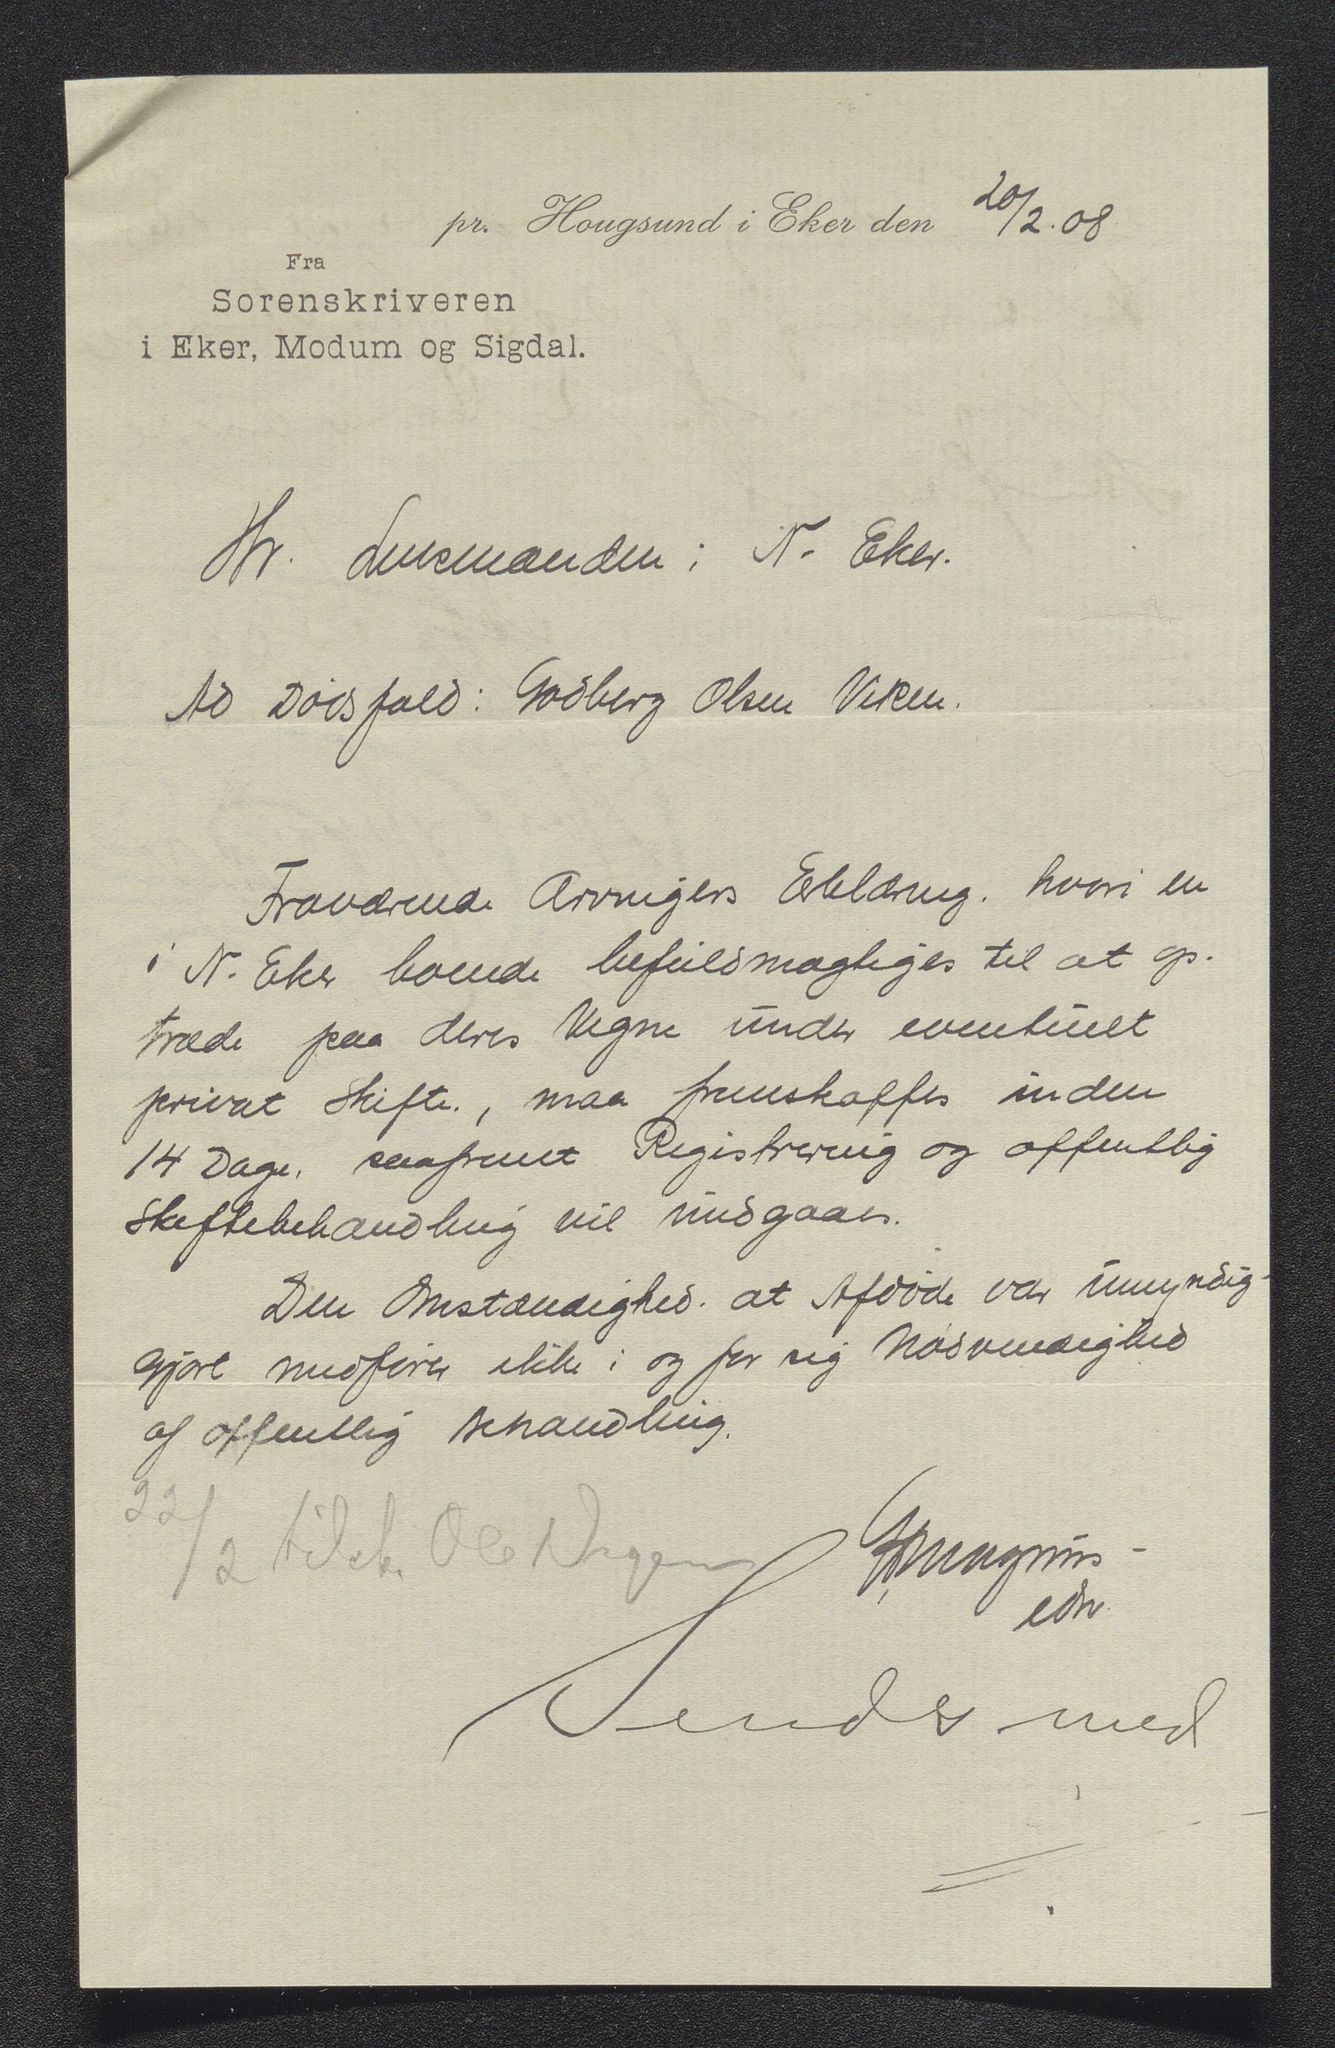 pr. Hougsund i Eker den 20/2.08
Fra
Sorenskriveren
i Eker, Modum og Sigdal.
Hr. Lensmanden i N. Eker.
Ad Dødsfald: Godberg Olsen Viken.
Fraværende Arvingers Erklæring. hvori en
i N. Eker boende befuldmægtiges til at op-
træde paa deres Vegne under eventuelt
privat Skifte., maa fremskaffes inden
14 Dage. saafremt Registrering og offentlig
Skiftebehandling vil undgaaes.
Den Omstændighed. at Afdøde var umyndig-
gjort medfører ikke i og for sig Nødvendighed
af offentlig Behandling.
22/2 tilsk. Ole
Magnus
edv.
Sendes med